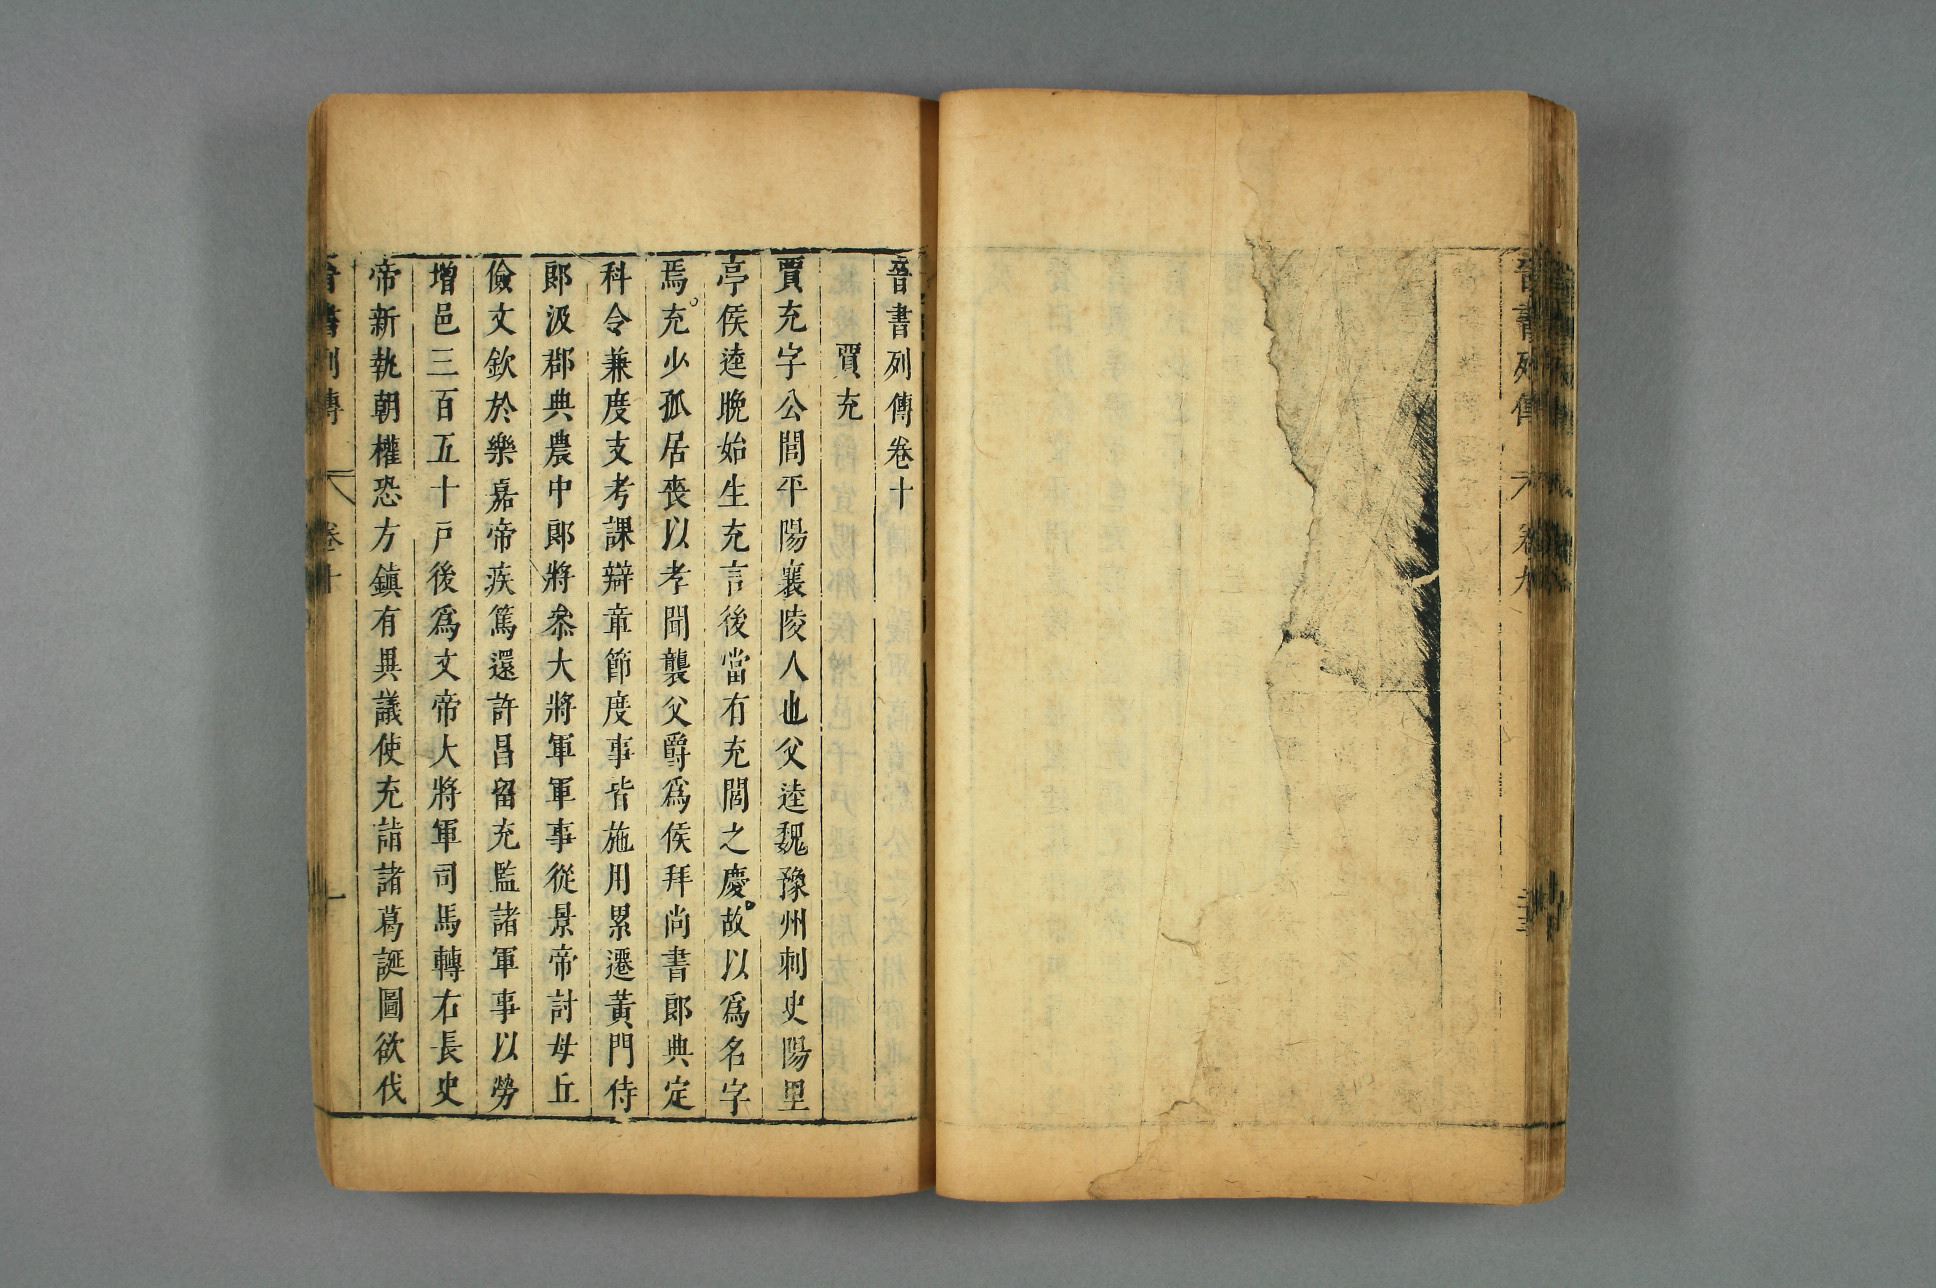 晉書列傳 卷九
晉書列傳卷十
賈充
賈充字公閭平陽襄陵人也父逵魏豫州刺史陽里
亭侯逵晚始生充言後當有充閭之慶故以爲名字
焉充少孤居喪以孝聞襲父爵爲侯拜尚書郎典定
科令兼度支考課辯章節度事皆施用累遷黃門侍
郎汲郡典農中郎將叅大將軍軍事從景帝討毋丘
儉文欽於樂嘉帝疾篤還許昌留充監諸軍事以勞
增邑三百五十戶後爲文帝大將軍司馬轉右長史
帝新執朝權恐方鎮有異議使充詣諸葛誕圖欲伐
晉書列傳 卷十 一